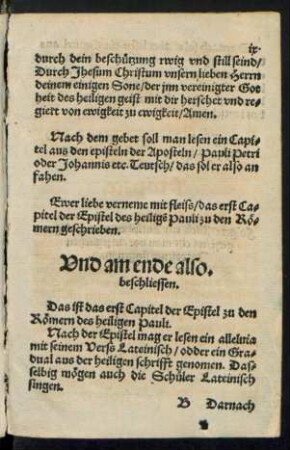 ix
durch dein beschützung rwig vnd still seind/
Durch Jhesum Christum vnsern lieben Herrn
deinem einigen Sone/der jnn vereinigter Got
heit des heiligen geist mit dir herschet vnd re-
giert von ewigkeit zu ewigkeit/Amen.
Nach dem gebet soll man lesen ein Capi-
tel aus den episteln der Aposteln/ Pauli Petri
oder Johannis etc. Teutsch/ das sol er also an
fahen.
Ewer liebe verneme mit fleiss/das erst Ca-
pitel der Epistel des heiligē Pauli zu den Rö-
mern geschrieben.
Vnd am ende also.
beschliessen.
Das ist das erst Capitel der Epistel zu den
Römern des heiligen Pauli.
Nach der Epistel mag er lesen ein alleluia
mit seinem Verss Lateinisch/ odder ein Gra-
dual aus der heiligen schrifft genomen. Das-
selbig mögen auch die Schüler Lateinisch
singen.
B Darnach